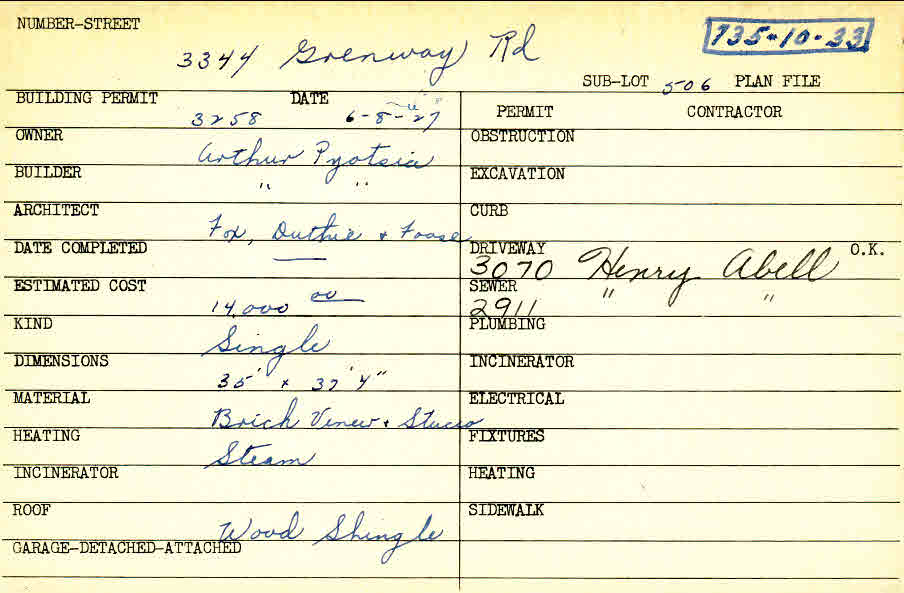 NUMBER-STREET
3344 Grenway Rd
735-10-33
SUB-LOT 506 PLAN FILE
BUILDING PERMIT 3258 DATE 6-8-27
PERMIT CONTRACTOR
OWNER Arthur Pyotsia
OBSTRUCTION
BUILDER " "
EXCAVATION
ARCHITECT Fox, Duthie + Foose
CURB
DATE COMPLETED —
DRIVEWAY 3070 Henry Abell O.K.
ESTIMATED COST 14,000 00
SEWER 2911 " "
KIND Single
PLUMBING
DIMENSIONS 35' x 37' 4"
INCINERATOR
MATERIAL Brick Vener + Stucco
ELECTRICAL
HEATING Steam
FIXTURES
INCINERATOR
HEATING
ROOF Wood Shingle
SIDEWALK
GARAGE-DETACHED-ATTACHED